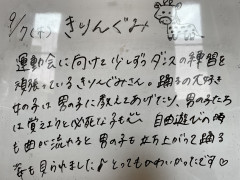 9/7(木) きりんぐみ
運動会に向けて少しずつダンスの練習を
頑張っているきりんぐみさん。踊るの大好き
女の子は男の子に教えてあげたり、男の子たち
は覚えようと必死な子も。自由遊びの時
も曲が流れると男の子も立ち上がって踊る
姿も見られました♪とってもかわいかったです♡